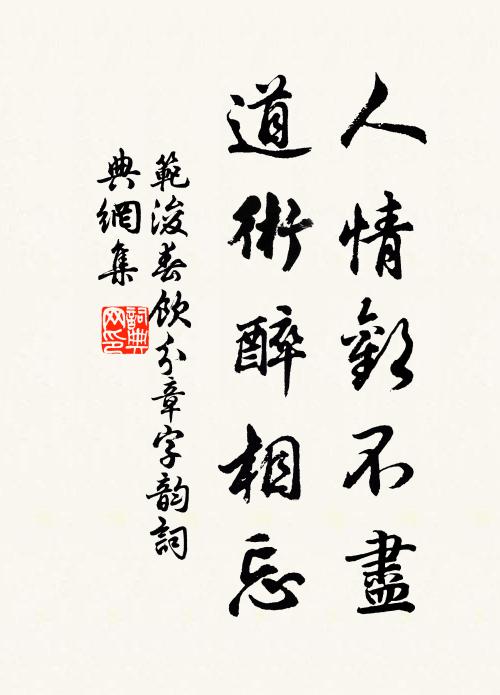 人情歡不盡
道術醉相忘
範浚春飲分章字韵詞
典網集
詞典
网印